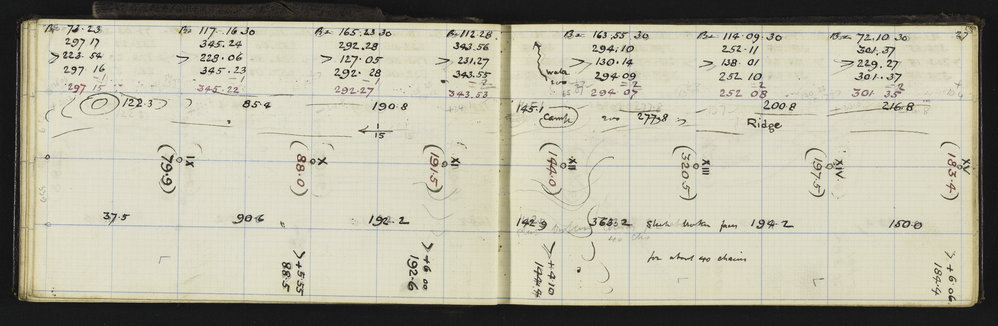 Ba 73.23
297 17
> 223.54
297 16
-1
297 15
Ba 117.16.30
345.24
> 228.06
345.23
-1
345.22
Ba 165.23.30
292.28
> 127.05
292.28
-1
292.27
Ba 112.28
343.56
> 231.27
343.55
-2
343.53
122.3
85.4
190.8
1/15
IX
(79.9)
X
(88.0)
XI
(191.5)
37.5
90.6
192.2
> +5.55
88.5
> +6 00
192.6
Ba 163.55 30
294.10
> 130.14
294.09
-2
294 07
Ba 114.09.30
252.11
> 138 01
252 10
-2
252 08
Ba 72.10.30
301.37
> 229.27
301.37
-2
301 35
water
200
145.1
Camp
200
277.8
200.8
216.8
Ridge
XII
(144.0)
XIII
(320.5)
XIV
(197.5)
XV
(183.4)
142.9
363.2
194.2
150.0
for about 40 chains
> +4.10
144.4
> +6.06
184.4